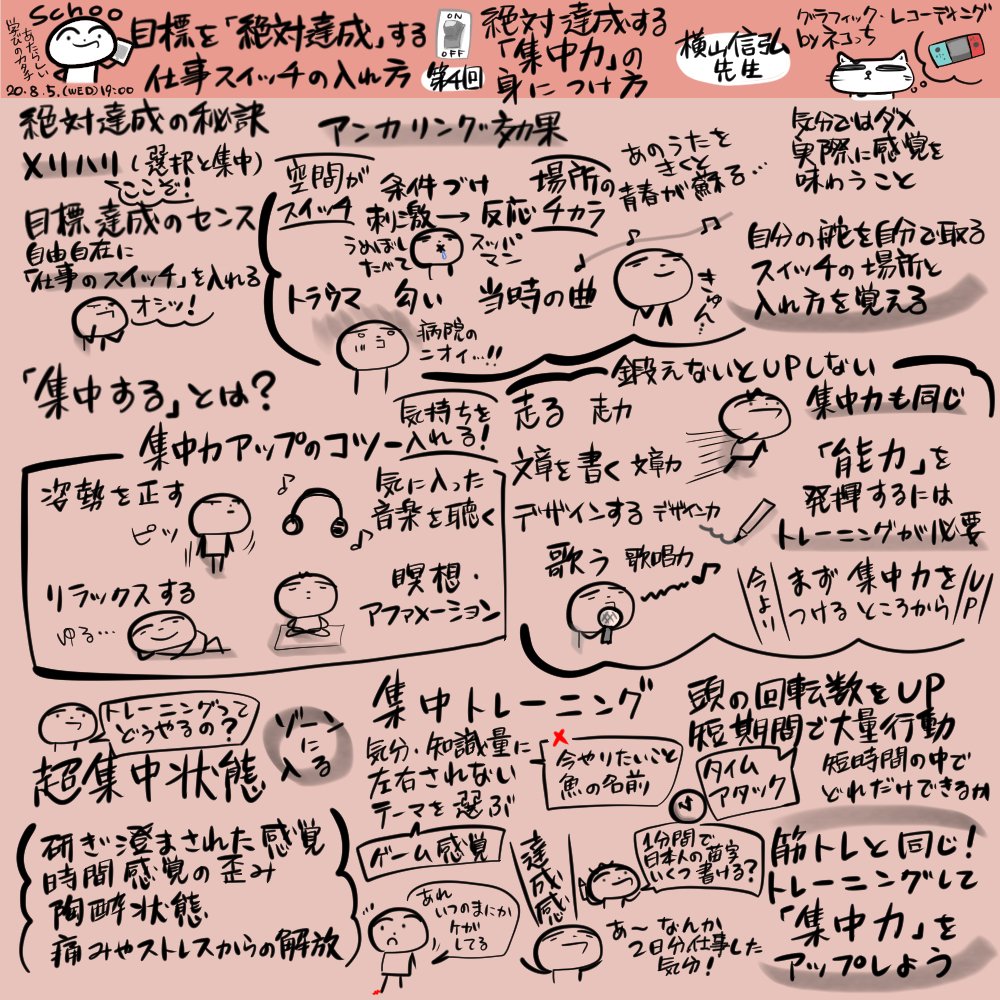 Schoo
あたらしい
学びのカタチ
20.8.5.(WED)19:00
目標を「絶対達成」する
仕事スイッチの入れ方
ON
OFF
第4回
絶対達成する
「集中力」の
身につけ方
横山信弘
先生
グラフィック・レコーディング
byネコっち
絶対達成の秘訣
メリハリ(選択と集中)
ここぞ!
目標達成のセンス
自由自在に
「仕事のスイッチ」を入れる
オシッ!
アンカリング効果
空間が
スイッチ
条件づけ
刺激→反応
場所の
チカラ
うめぼし
たべて
スッパ
マン
あのうたを
きくと
青春が蘇る…
トラウマ
匂い
当時の曲
きゅん…
病院の
ニオイ…!!
気分ではダメ
実際に感覚を
味わうこと
自分の舵を自分で取る
スイッチの場所と
入れ方を覚える
「集中する」とは?
気持ちを
入れる!
集中力アップのコツ
姿勢を正す
ピッ
気に入った
音楽を聴く
リラックスする
ゆる…
瞑想・
アファメーション
鍛えないとUPしない
走る 走力
文章を書く 文章力
デザインする デザイン力
歌う 歌唱力
集中力も同じ
「能力」を
発揮するには
トレーニングが必要
今より
まず集中力を
つけるところから
UP
トレーニングって
どうやるの?
ゾーン
に
入る
超集中状態
研ぎ澄まされた感覚
時間感覚の歪み
陶酔状態
痛みやストレスからの解放
集中トレーニング
気分・知識量に
左右されない
テーマを選ぶ
今やりたいこと
魚の名前
ゲーム感覚
あれ
いつのまにか
ケガ
してる
達成感
1分間で
日本人の苗字
いくつ書ける?
あ～なんか
2日分仕事した
気分!
頭の回転数をUP
短期間で大量行動
タイム
アタック
短時間の中で
どれだけできるか
筋トレと同じ!
トレーニングして
「集中力」を
アップしよう